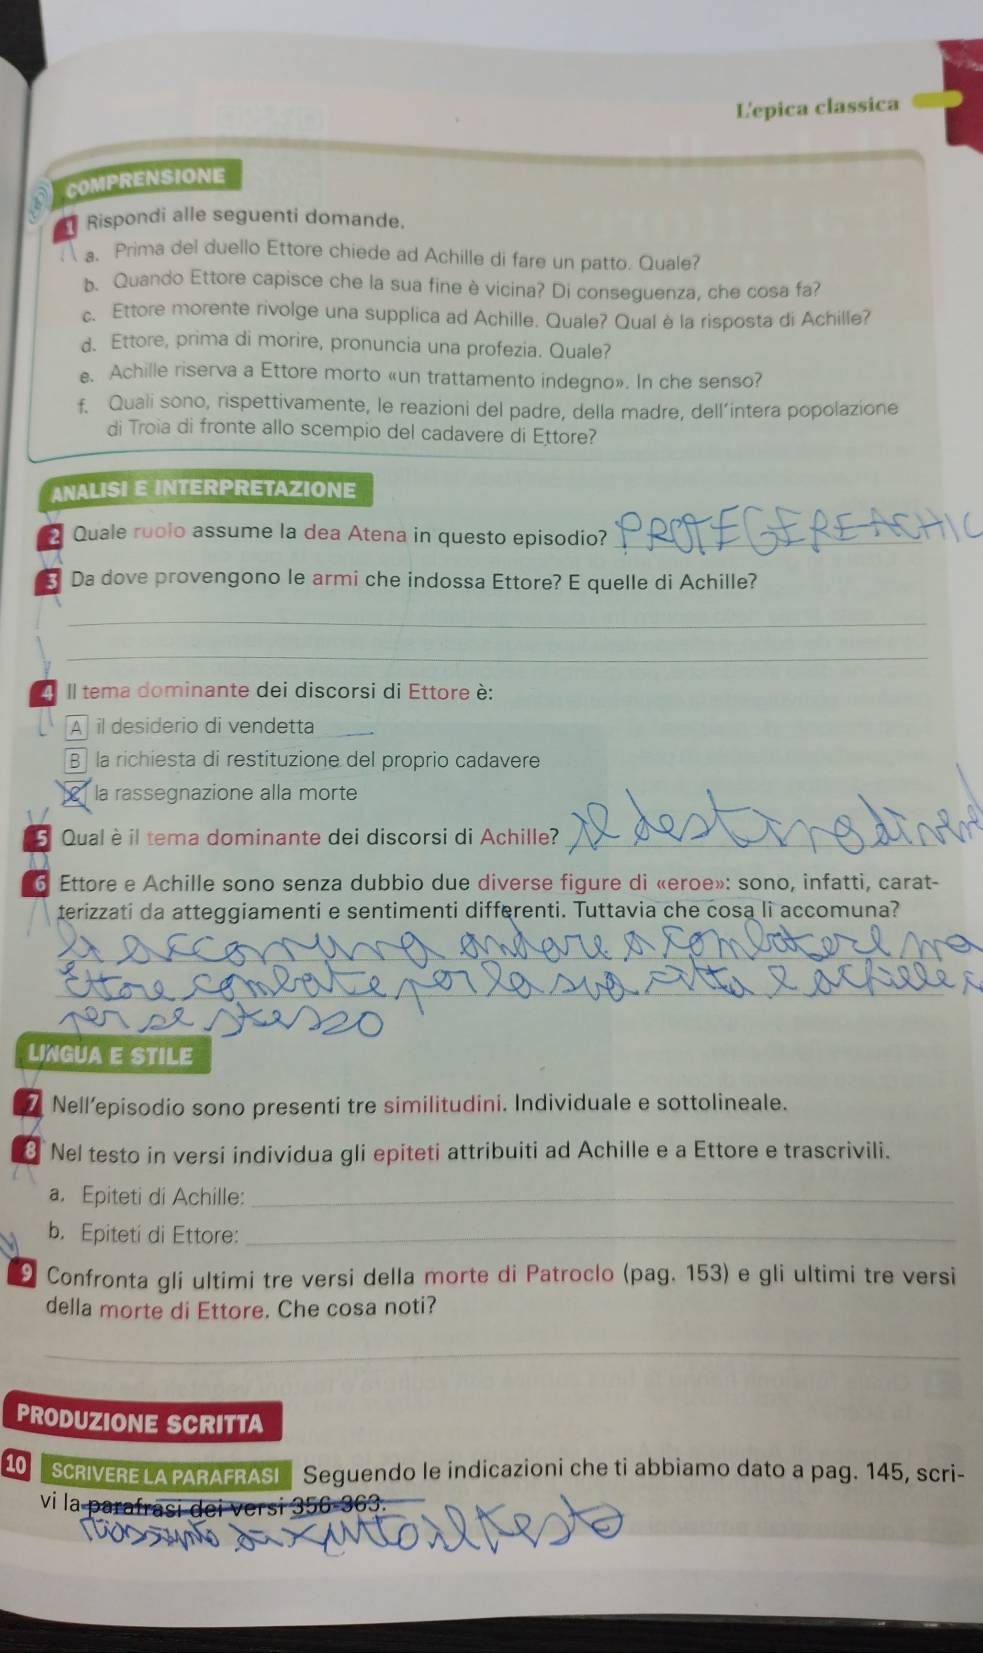 L'epica classica
COMPRENSIONE
1 Rispondi alle seguenti domande.
a. Prima del duello Ettore chiede ad Achille di fare un patto. Quale?
b. Quando Ettore capisce che la sua fine è vicina? Di conseguenza, che cosa fa?
c. Ettore morente rivolge una supplica ad Achille. Quale? Qual è la risposta di Achille?
d. Ettore, prima di morire, pronuncia una profezia. Quale?
e. Achille riserva a Ettore morto «un trattamento indegno». In che senso?
f. Quali sono, rispettivamente, le reazioni del padre, della madre, dell'intera popolazione
di Troia di fronte allo scempio del cadavere di Ettore?
ANALISI E INTERPRETAZIONE
2 Quale ruolo assume la dea Atena in questo episodio? PROTEGERE ACHIL
3 Da dove provengono le armi che indossa Ettore? E quelle di Achille?
4 Il tema dominante dei discorsi di Ettore è:
A il desiderio di vendetta
B la richiesta di restituzione del proprio cadavere
C la rassegnazione alla morte
5 Qual è il tema dominante dei discorsi di Achille? il destino
6 Ettore e Achille sono senza dubbio due diverse figure di «eroe»: sono, infatti, carat-
terizzati da atteggiamenti e sentimenti differenti. Tuttavia che cosa li accomuna?
li accomuna andare a combatere ma
Ettore combate per la sua citta e achille
per se stesso
LINGUA E STILE
7 Nell'episodio sono presenti tre similitudini. Individuale e sottolineale.
8 Nel testo in versi individua gli epiteti attribuiti ad Achille e a Ettore e trascrivili.
a. Epiteti di Achille:
b. Epiteti di Ettore:
9 Confronta gli ultimi tre versi della morte di Patroclo (pag. 153) e gli ultimi tre versi
della morte di Ettore. Che cosa noti?
PRODUZIONE SCRITTA
10 SCRIVERE LA PARAFRASI Seguendo le indicazioni che ti abbiamo dato a pag. 145, scri-
vi la parafrasi dei versi 356-363.
riassunto di tutto il testo